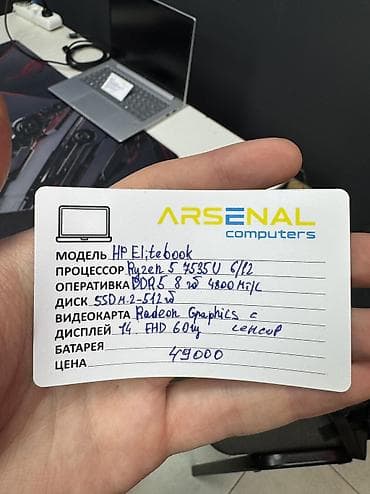 ARSENAL
computers
МОДЕЛЬ HP Elitebook
ПРОЦЕССОР Ryzen 5 7535U 6/12
ОПЕРАТИВКА DDR5 8 гб 4800 Мг/с
ДИСК SSD м.2-512гб
ВИДЕОКАРТА Radeon Graphics с
ДИСПЛЕЙ 14 FHD 60гц сенсор
БАТАРЕЯ
ЦЕНА 49000